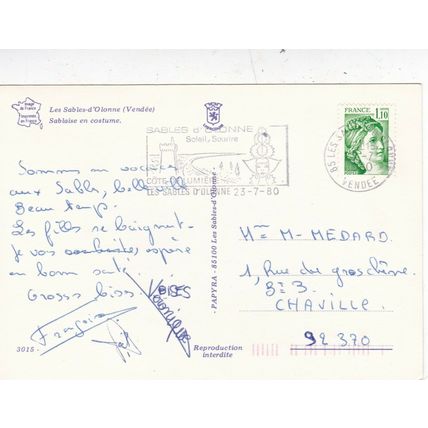 Image de France
Imprimerie en France
Les Sables-d'Olonne (Vendée)
Sablaise en costume.
SABLES d'OLONNE
Soleil, Sourire
COTE DE LUMIÈRE
LES SABLES D'OLONNE 23-7-80
FRANCE
1,10
85 LES
VENDEE
Sommes en vacances
aux Sables, belle ville
Beau temps.
Les filles se baignent
je vous souhaites espère
en bonne santé
Grosses bises
BISES
Véronique
Françoise
3015 -
- PAPYRA - 85100 Les Sables-d'Olonne -
Reproduction
interdite
Mme M- MEDARD.
1, Rue du gros chêne.
Bt 3.
CHAVILLE.
92 370